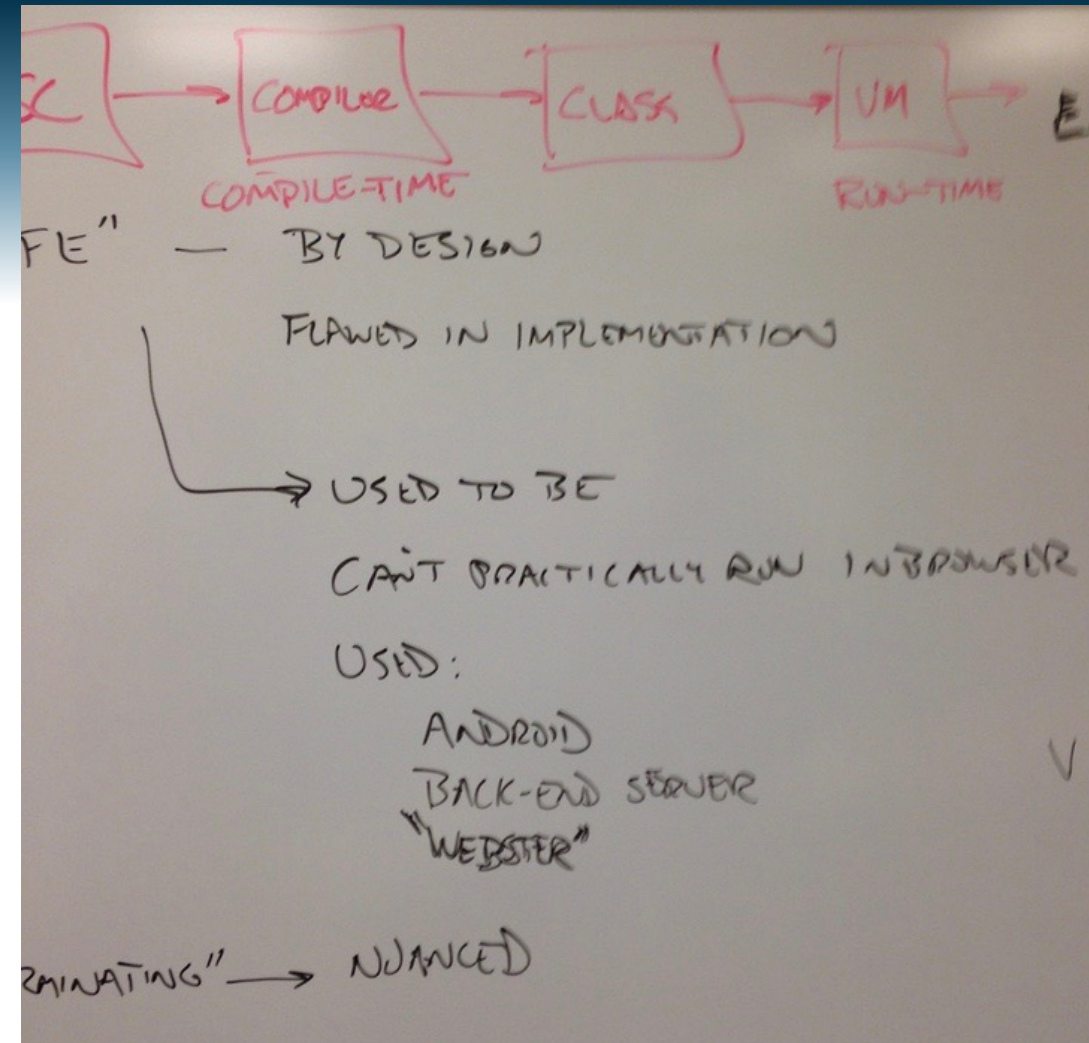 SC COMPILER CLASS VM E
COMPILE-TIME RUN-TIME
FE" — BY DESIGN
FLAWED IN IMPLEMENTATION
USED TO BE
CAN'T PRACTICALLY RUN IN BROWSER
USED:
ANDROID
V
BACK-END SERVER
"WEBSTER"
RMINATING" → NUANCED